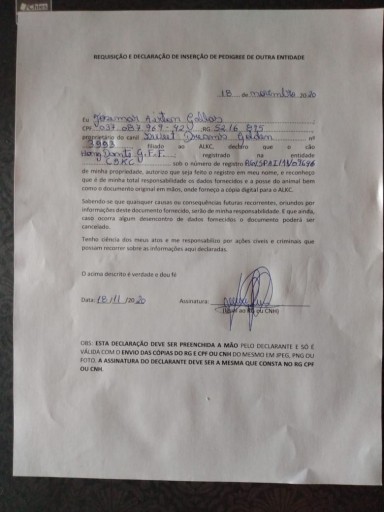 REQUISIÇÃO E DECLARAÇÃO DE INSERÇÃO DE PEDIGREE DE OUTRA ENTIDADE
18 de novembro, 2020
Eu
CPF 037.087.969-42, RG 5216 835
proprietário do canil Dream's Golden nº
3993 filiado ao ALKC, declaro que o cão
registrado na entidade
CBKC, sob o número de registro
de minha propriedade, autorizo que seja feito o registro em meu nome, e reconheço
que é de minha total responsabilidade os dados fornecidos e a posse do animal bem
como o documento original em mãos, onde forneço a cópia digital para o ALKC.
Sabendo se que quaisquer causas ou consequências futuras recorrentes, oriundos por
informações deste documento fornecido, serão de minha responsabilidade. E que ainda,
caso ocorra algum desencontro de dados fornecidos o documento poderá ser
cancelado.
Tenho ciência dos meus atos e me responsabilizo por ações cíveis e criminais que
possam recorrer sobre as informações aqui declaradas.
O acima descrito é verdade e dou fé
Data: 18/11/2020 Assinatura:
(igual ao RG ou CNH)
OBS: ESTA DECLARAÇÃO DEVE SER PREENCHIDA A MÃO PELO DECLARANTE E SO É
VÁLIDA COM O ENVIO DAS CÓPIAS DO RG E CPF OU CNH DO MESMO EM JPEG, PNG OU
FOTO. A ASSINATURA DO DECLARANTE DEVE SER A MESMA QUE CONSTA NO RG CPF
OU CNH.